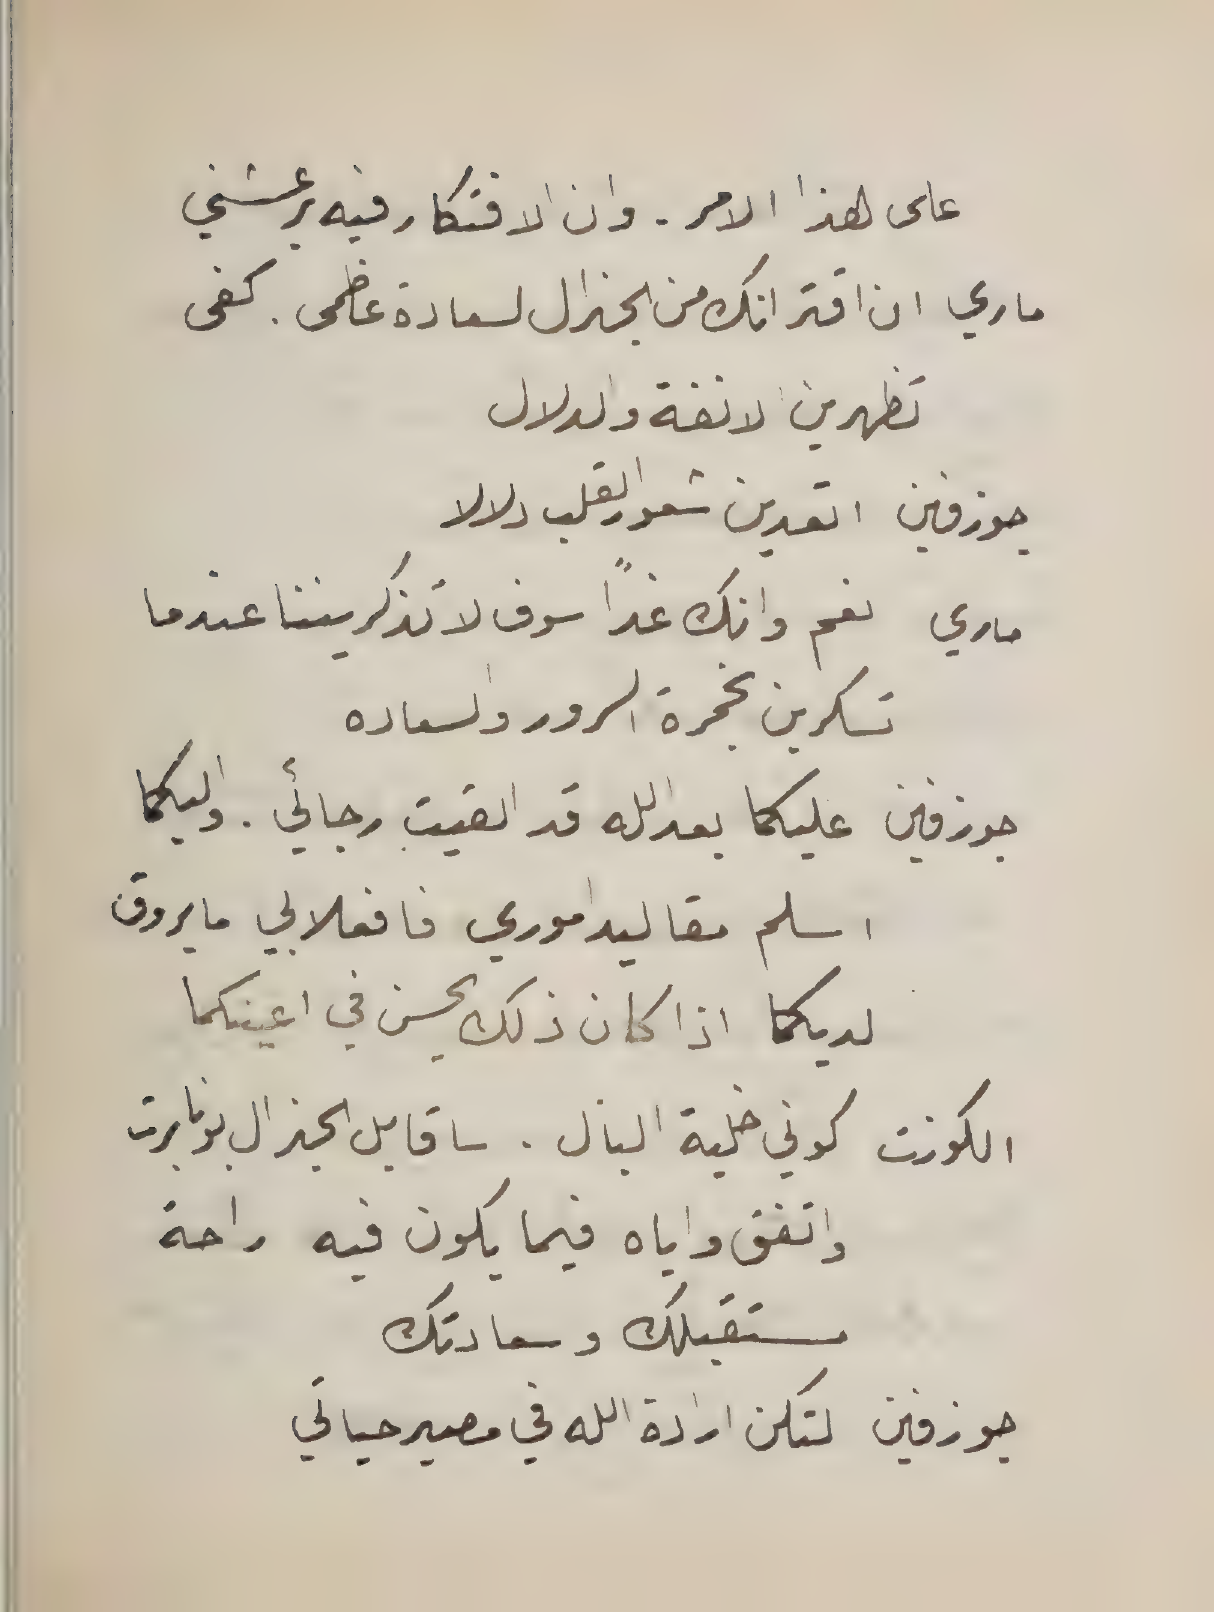 على هذا الامر . وان الافتكار فيه يرعشني
ماري ان اقترانك من الجنرال لسعادة عظمى . كفى
تظهرين الانفة والدلال
جوزفين اتعدين شعور القلب دلالا
ماري نعم وانك غداً سوف لا تذكريننا عندما
تسكرين بخمرة السرور والسعاده
جوزفين عليكما بعد الله قد القيت رجائي . واليكما
اسلم مقاليد اموري فافعلا بي ما يروق
لديكما اذا كان ذلك يحسن في اعينكما
الكونت كوني خلية البال . ساقابل الجنرال بونابرت
واتفق واياه فيما يكون فيه راحة
مستقبلك وسعادتك
جوزفين لتكن ارادة الله في مصير حياتي